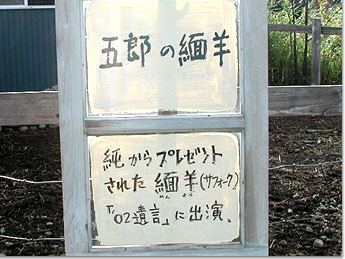 五郎の緬羊
純からプレゼント
された緬羊(サフォーク)
めん よう
「'02遺言」に出演。